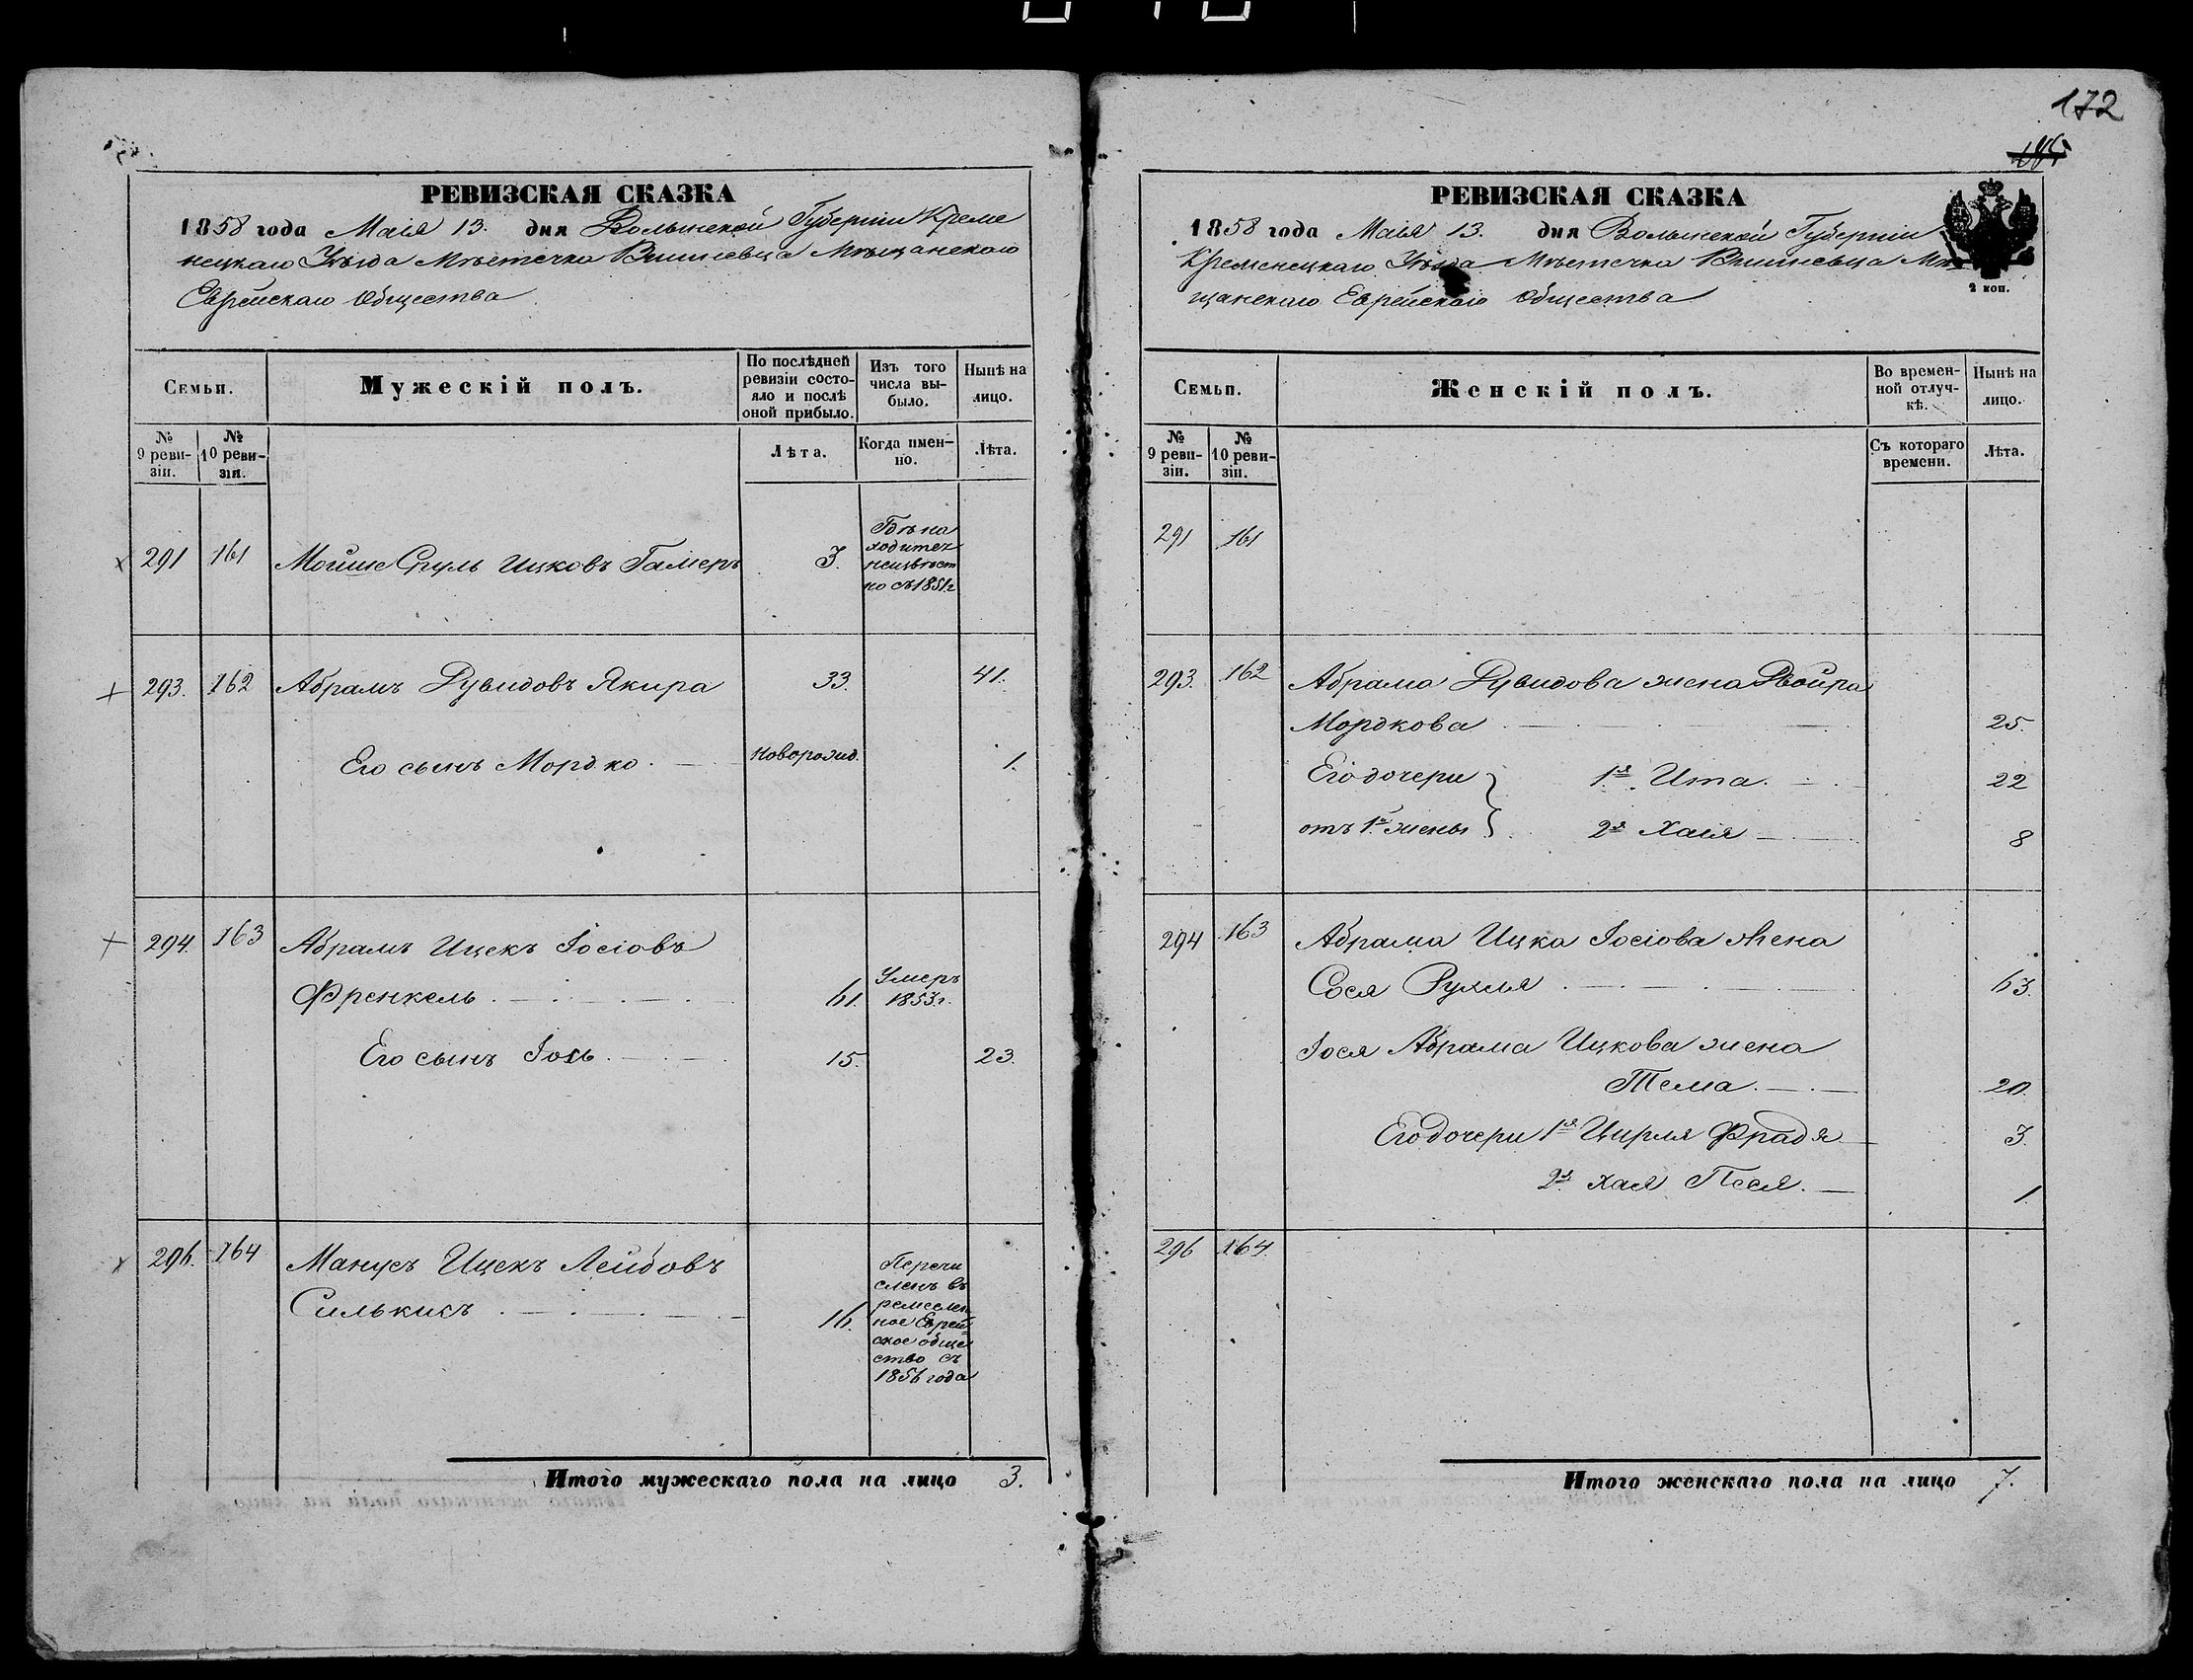 172
РЕВИЗСКАЯ СКАЗКА
1858 года Маія 13. дня Волынской Губерніи Креме
нецкаго Уѣзда Мѣстечка Вишневца Мѣщанскаго
Еврейскаго Общества
Семьи.
Мужескій полъ.
По послѣдней ревизіи состо-
яло и послѣ оной прибыло.
Изъ того числа вы-
было.
Нынѣ на лицо.
№ 9 реви-
зіи.
№ 10 реви-
зіи.
Лѣта.
Когда имен-
но.
Лѣта.
291 161 Мошко Сруль Ицковъ Гамеръ 3.
Гдѣ на
ходится
неизвѣст
но съ 1851г
293. 162 Абрамъ Дувидовъ Якира 33. 41.
Его сынъ Мордко. новорожд. 1.
294. 163 Абрамъ Ицекъ Іосіовъ
Френкель 61.
Умеръ
1853г.
Его сынъ Іось. 15. 23.
296. 164 Манусъ Ицекъ Лейбовъ
16.
Перечи
сленъ въ
ремеслен
ное Еврей
ское обще
ство съ
1856 года
Итого мужескаго пола на лицо 3.
РЕВИЗСКАЯ СКАЗКА
1858 года Маья 13. дня Волынской Губерніи
Кременецкаго Уѣзда Мѣстечка Вишневца Мѣ
щанскаго Еврейскаго Общества
2 коп.
Семьи.
Женскій полъ.
Во времен-
ной отлуч-
кѣ.
Нынѣ на лицо.
№ 9 реви-
зіи.
№ 10 реви-
зіи.
Съ котораго времени.
Лѣта.
291 161
293. 162 Абрама Дувидова жена Двойра
Мордкова 25.
Его дочери 1я Ита. 22
отъ 1й жены 2я Хаія 8
294 163 Абрама Ицка Іосіова жена
Сося Рухля 63.
Іося Абрама Ицкова жена
Тема. 20.
Его дочери 1я Цирля Фрадя 3.
2я Хая Песя. 1.
296 164.
Итого женскаго пола на лицо 7.